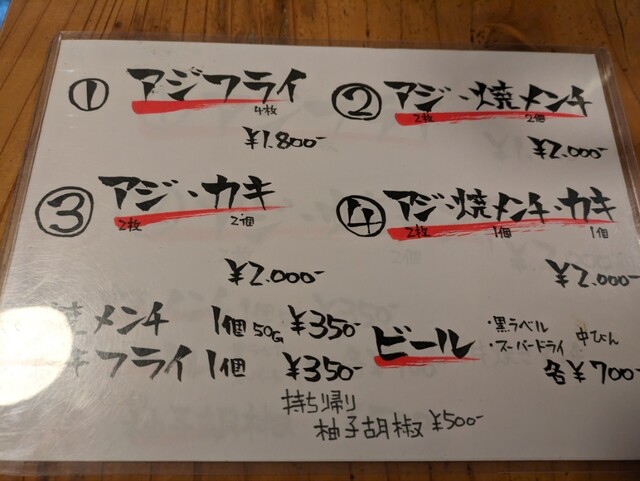 ① アジフライ
4枚
¥1.800-
② アジ・焼メンチ
2枚 2個
¥2.000-
③ アジ・カキ
2枚 2個
¥2.000-
④ アジ・焼メンチ・カキ
2枚 1個 1個
¥2.000-
メンチ 1個 50G ¥350-
キフライ 1個 ¥350-
ビール
・黒ラベル
・スーパードライ
中びん
各¥700-
持ち帰り
柚子胡椒 ¥500-